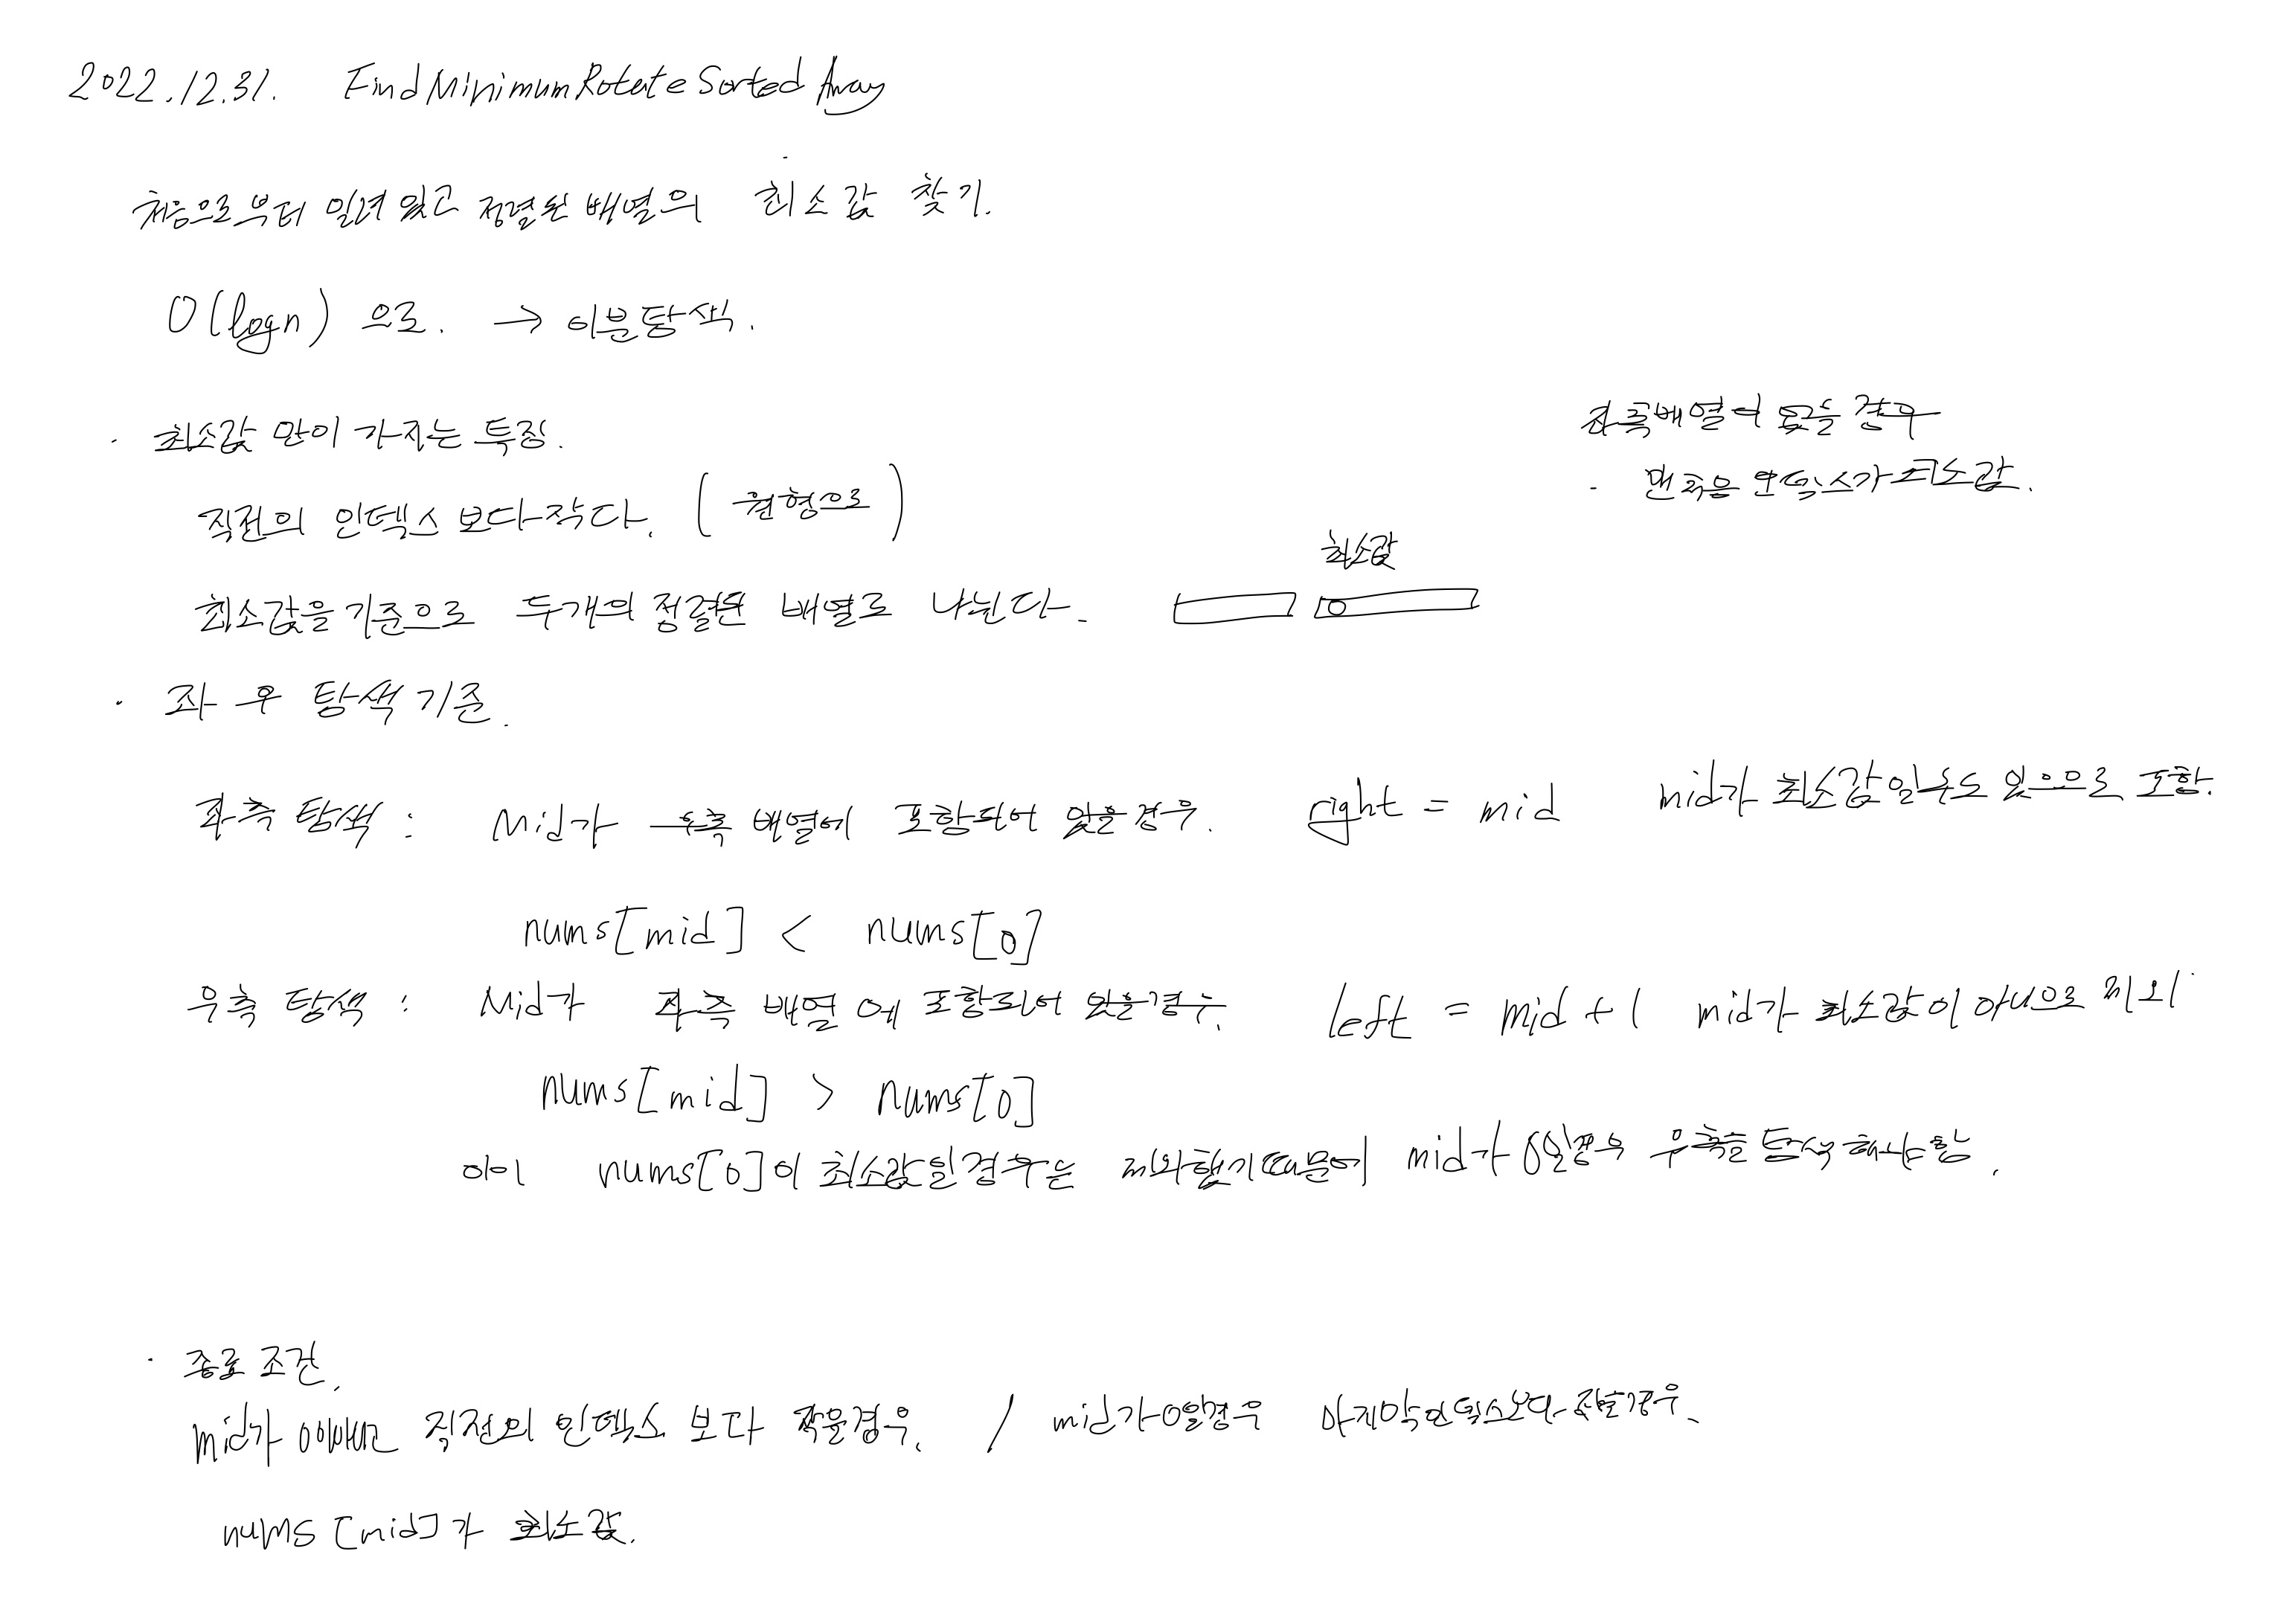 2022.12.31. FindMinimumRotateSortedArray
처음으로부터 밀려 있고 정렬된 배열의 최소값 찾기.
O(logn) 으로. → 이분탐색.
· 최소값 만이 가지는 특징.
직전의 인덱스 보다 작다. (원형으로)
최소값을 기준으로 두개의 정렬된 배열로 나뉜다.
좌측배열이 없을 경우
· 맨 처음 인덱스가 최소값.
최소값
· 좌 우 탐색 기준.
좌측 탐색 : Mid가 우측 배열에 포함되어 있을 경우. right = mid mid가 최소값일수도 있으므로 포함.
nums[mid] < nums[0]
우측 탐색 : Mid가 좌측 배열에 포함되어 있을경우. left = mid + 1 mid가 최소값이 아니므로 제외
nums[mid] > nums[0]
nums[0]이 최소값일경우는 제외했기때문에 mid가 0일경우 우측을 탐색해야함.
· 종료 조건.
mid가 직전의 인덱스 보다 작을경우. / mid가 0일경우 마지막인덱스보다 작을경우.
nums[mid]가 최소값.